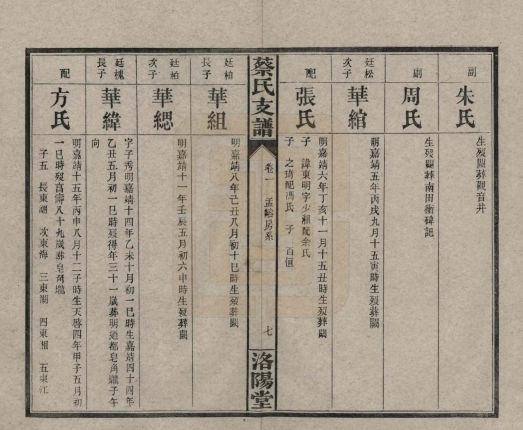 副
朱氏
生歿闕葬觀音井
副
周氏
生歿闕葬南田衝碑記
廷松
次子
華綰
明嘉靖五年丙戌九月十五寅時生歿葬闕
配
張氏
明嘉靖六年丁亥十一月十五丑時生歿葬闕
子 諱東明字少湘配余氏
子 之琦配馮氏 子 百恒
蔡氏支譜
卷一 孟 房系
七
洛陽堂
廷柏
長子
華組
明嘉靖八年己丑八月初十巳時生歿葬闕
廷柏
次子
華緦
明嘉靖十一年壬辰五月初六申時生歿葬闕
廷槐
長子
華緯
字子秀明嘉靖十四年乙未十月初一巳時生嘉靖四十四年
乙丑五月初一巳時歿得年三十一歲葬明道都皂角壠子午
向
配
方氏
明嘉靖十五年丙申八月十二子時生天啓四年甲子五月初
一巳時歿享壽八十九歲葬皂角壠
子五 長東湖 次東海 三東湖 四東湘 五東江